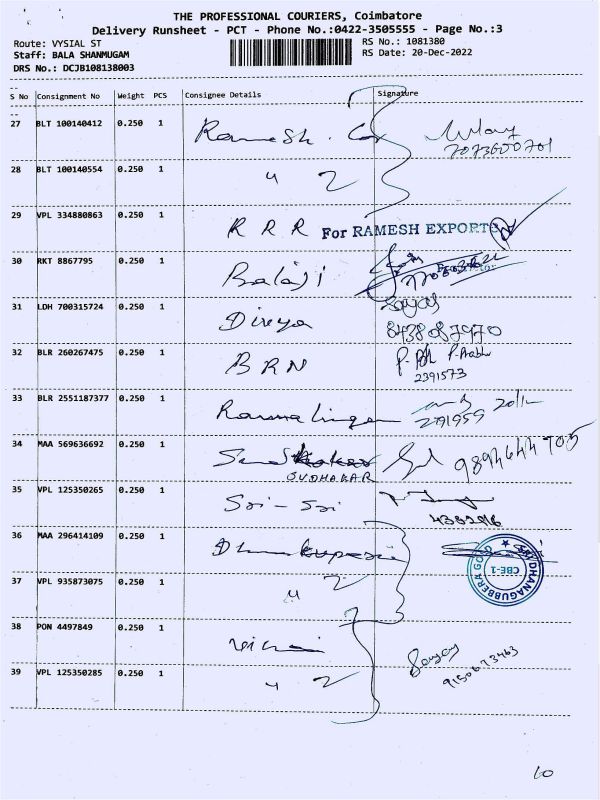 THE PROFESSIONAL COURIERS, Coimbatore
Delivery Runsheet - PCT - Phone No.:0422-3505555 - Page No.:3
Route: VYSIAL ST
RS No.: 1081380
Staff: BALA SHANMUGAM
RS Date: 20-Dec-2022
DRS No.: DCJB108138003
S No Consignment No Weight PCS Consignee Details Signature
27 BLT 100140412 0.250 1 Ramesh.
7073600701
28 BLT 100140554 0.250 1 " 2
29 VPL 334880863 0.250 1 R R R For RAMESH EXPORTS
30 RKT 8867795 0.250 1 Balaji
31 LDH 700315724 0.250 1 Divya
8438087970
32 BLR 260267475 0.250 1 BRN P. Prabhu
2391573
33 BLR 2551187377 0.250 1 Ramalingam
34 MAA 569636692 0.250 1 9894644705
SUDHAKAR
35 VPL 125350265 0.250 1 Sri-Sri
4382916
36 MAA 296414109 0.250 1 CBE-1
37 VPL 935873075 0.250 1 " 2
38 PON 4497849 0.250 1
9150673463
39 VPL 125350285 0.250 1 " 2
10